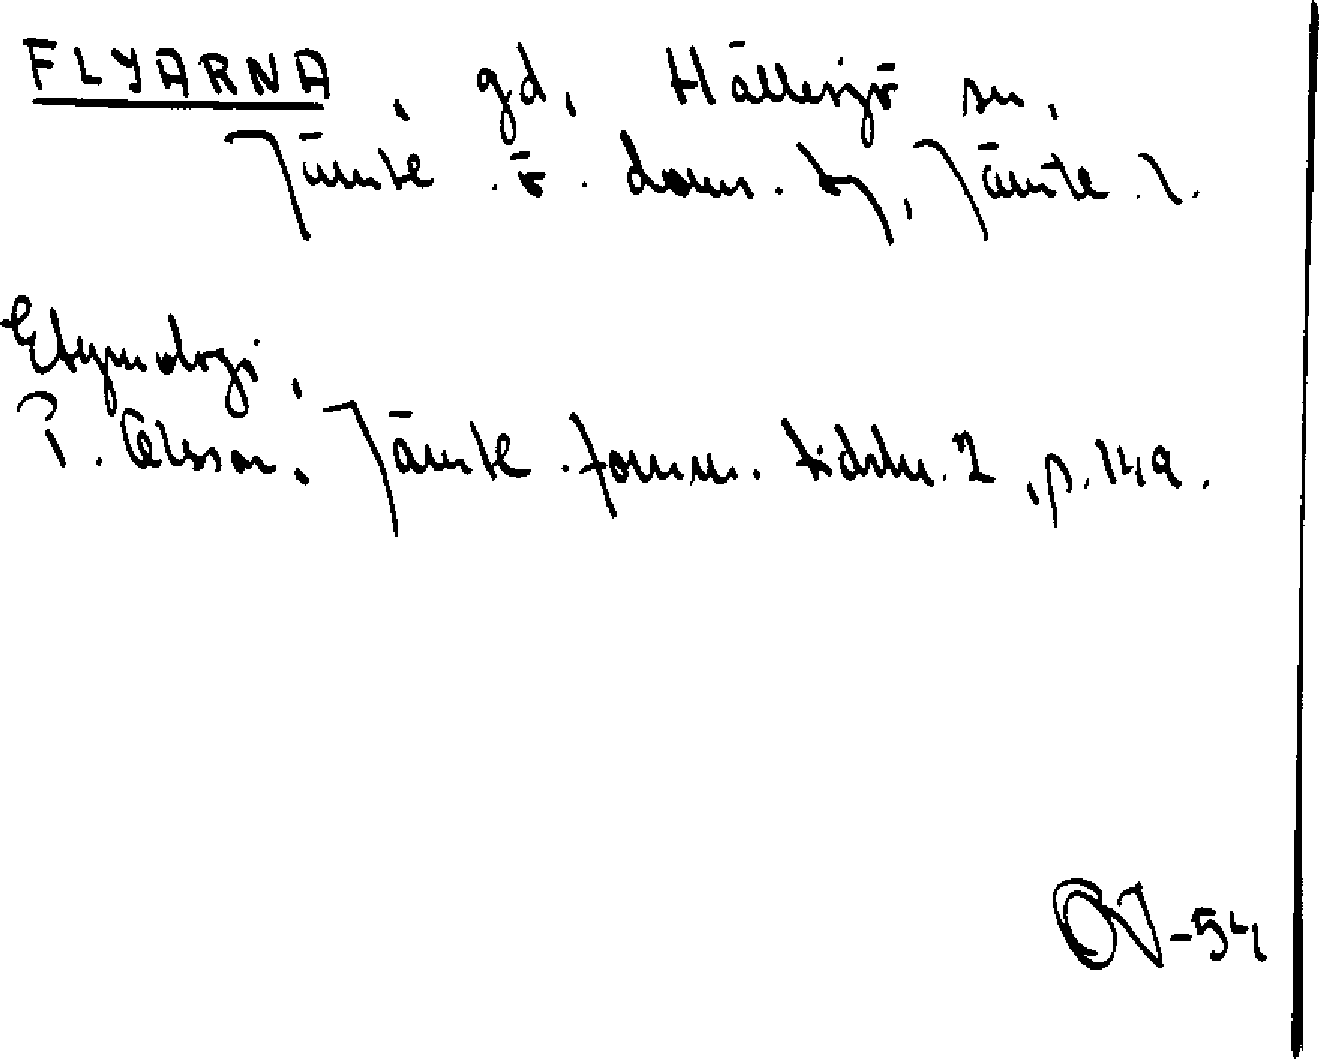 FLYARNA, gd, Hällesjö sn,
Jämtl. ö. doms. , Jämtl. l.
Etymologi.
P. Olsson, Jämtl. fornm. tidskr. 2, p. 149.
-54